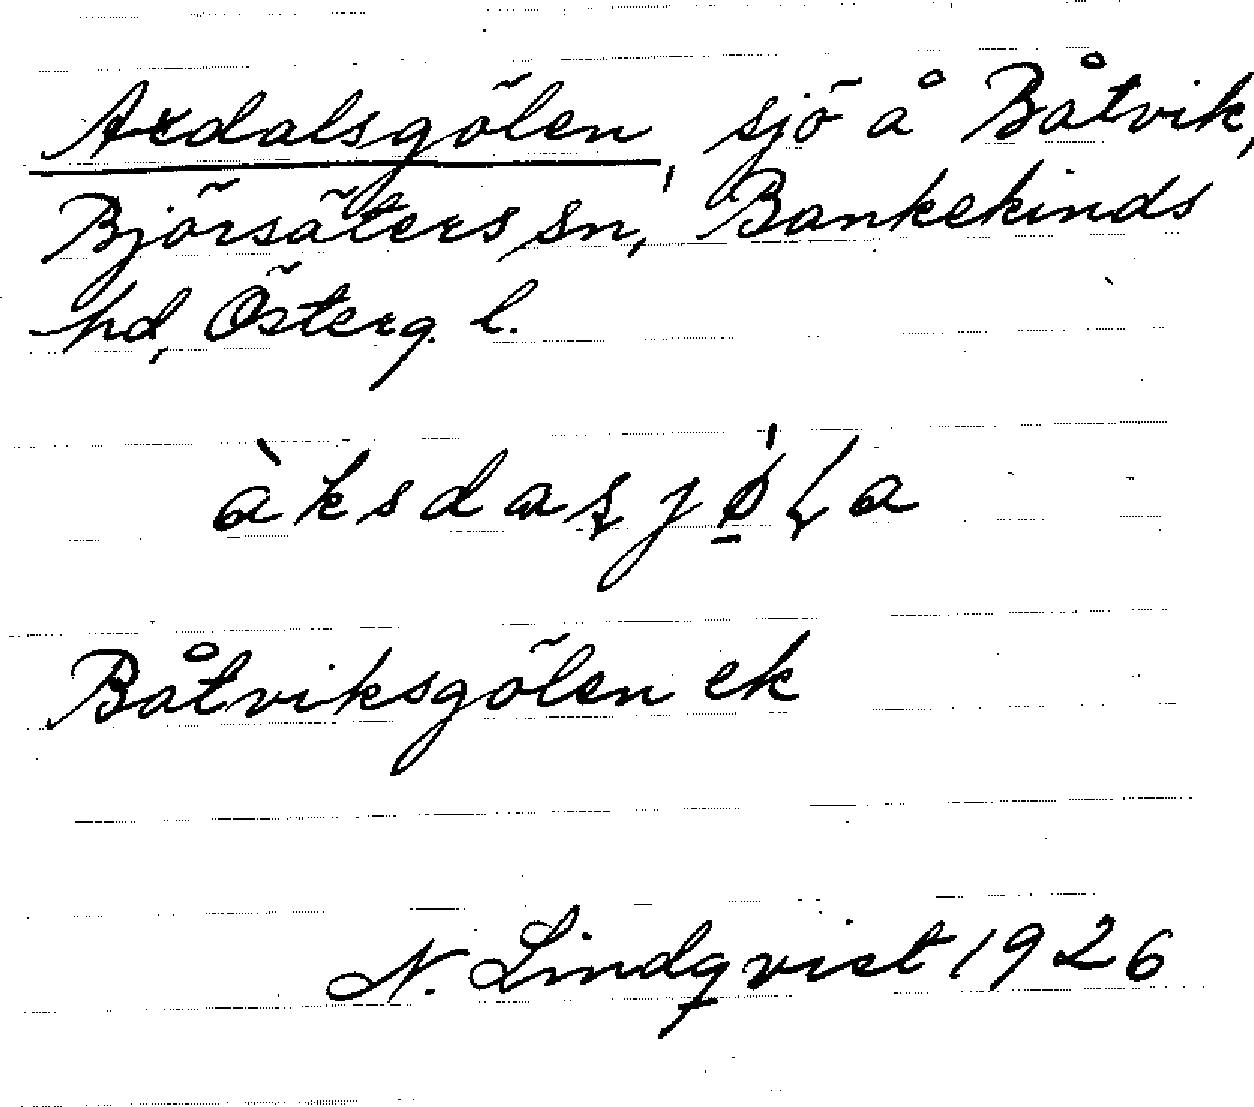 Axdalsgölen, sjö å Båtvik,
Björsäters sn, Bankekinds
hd, Österg. l.
àksdaʂjǿ̠ɭa
Båtviksgölen ek
N. Lindqvist 1926